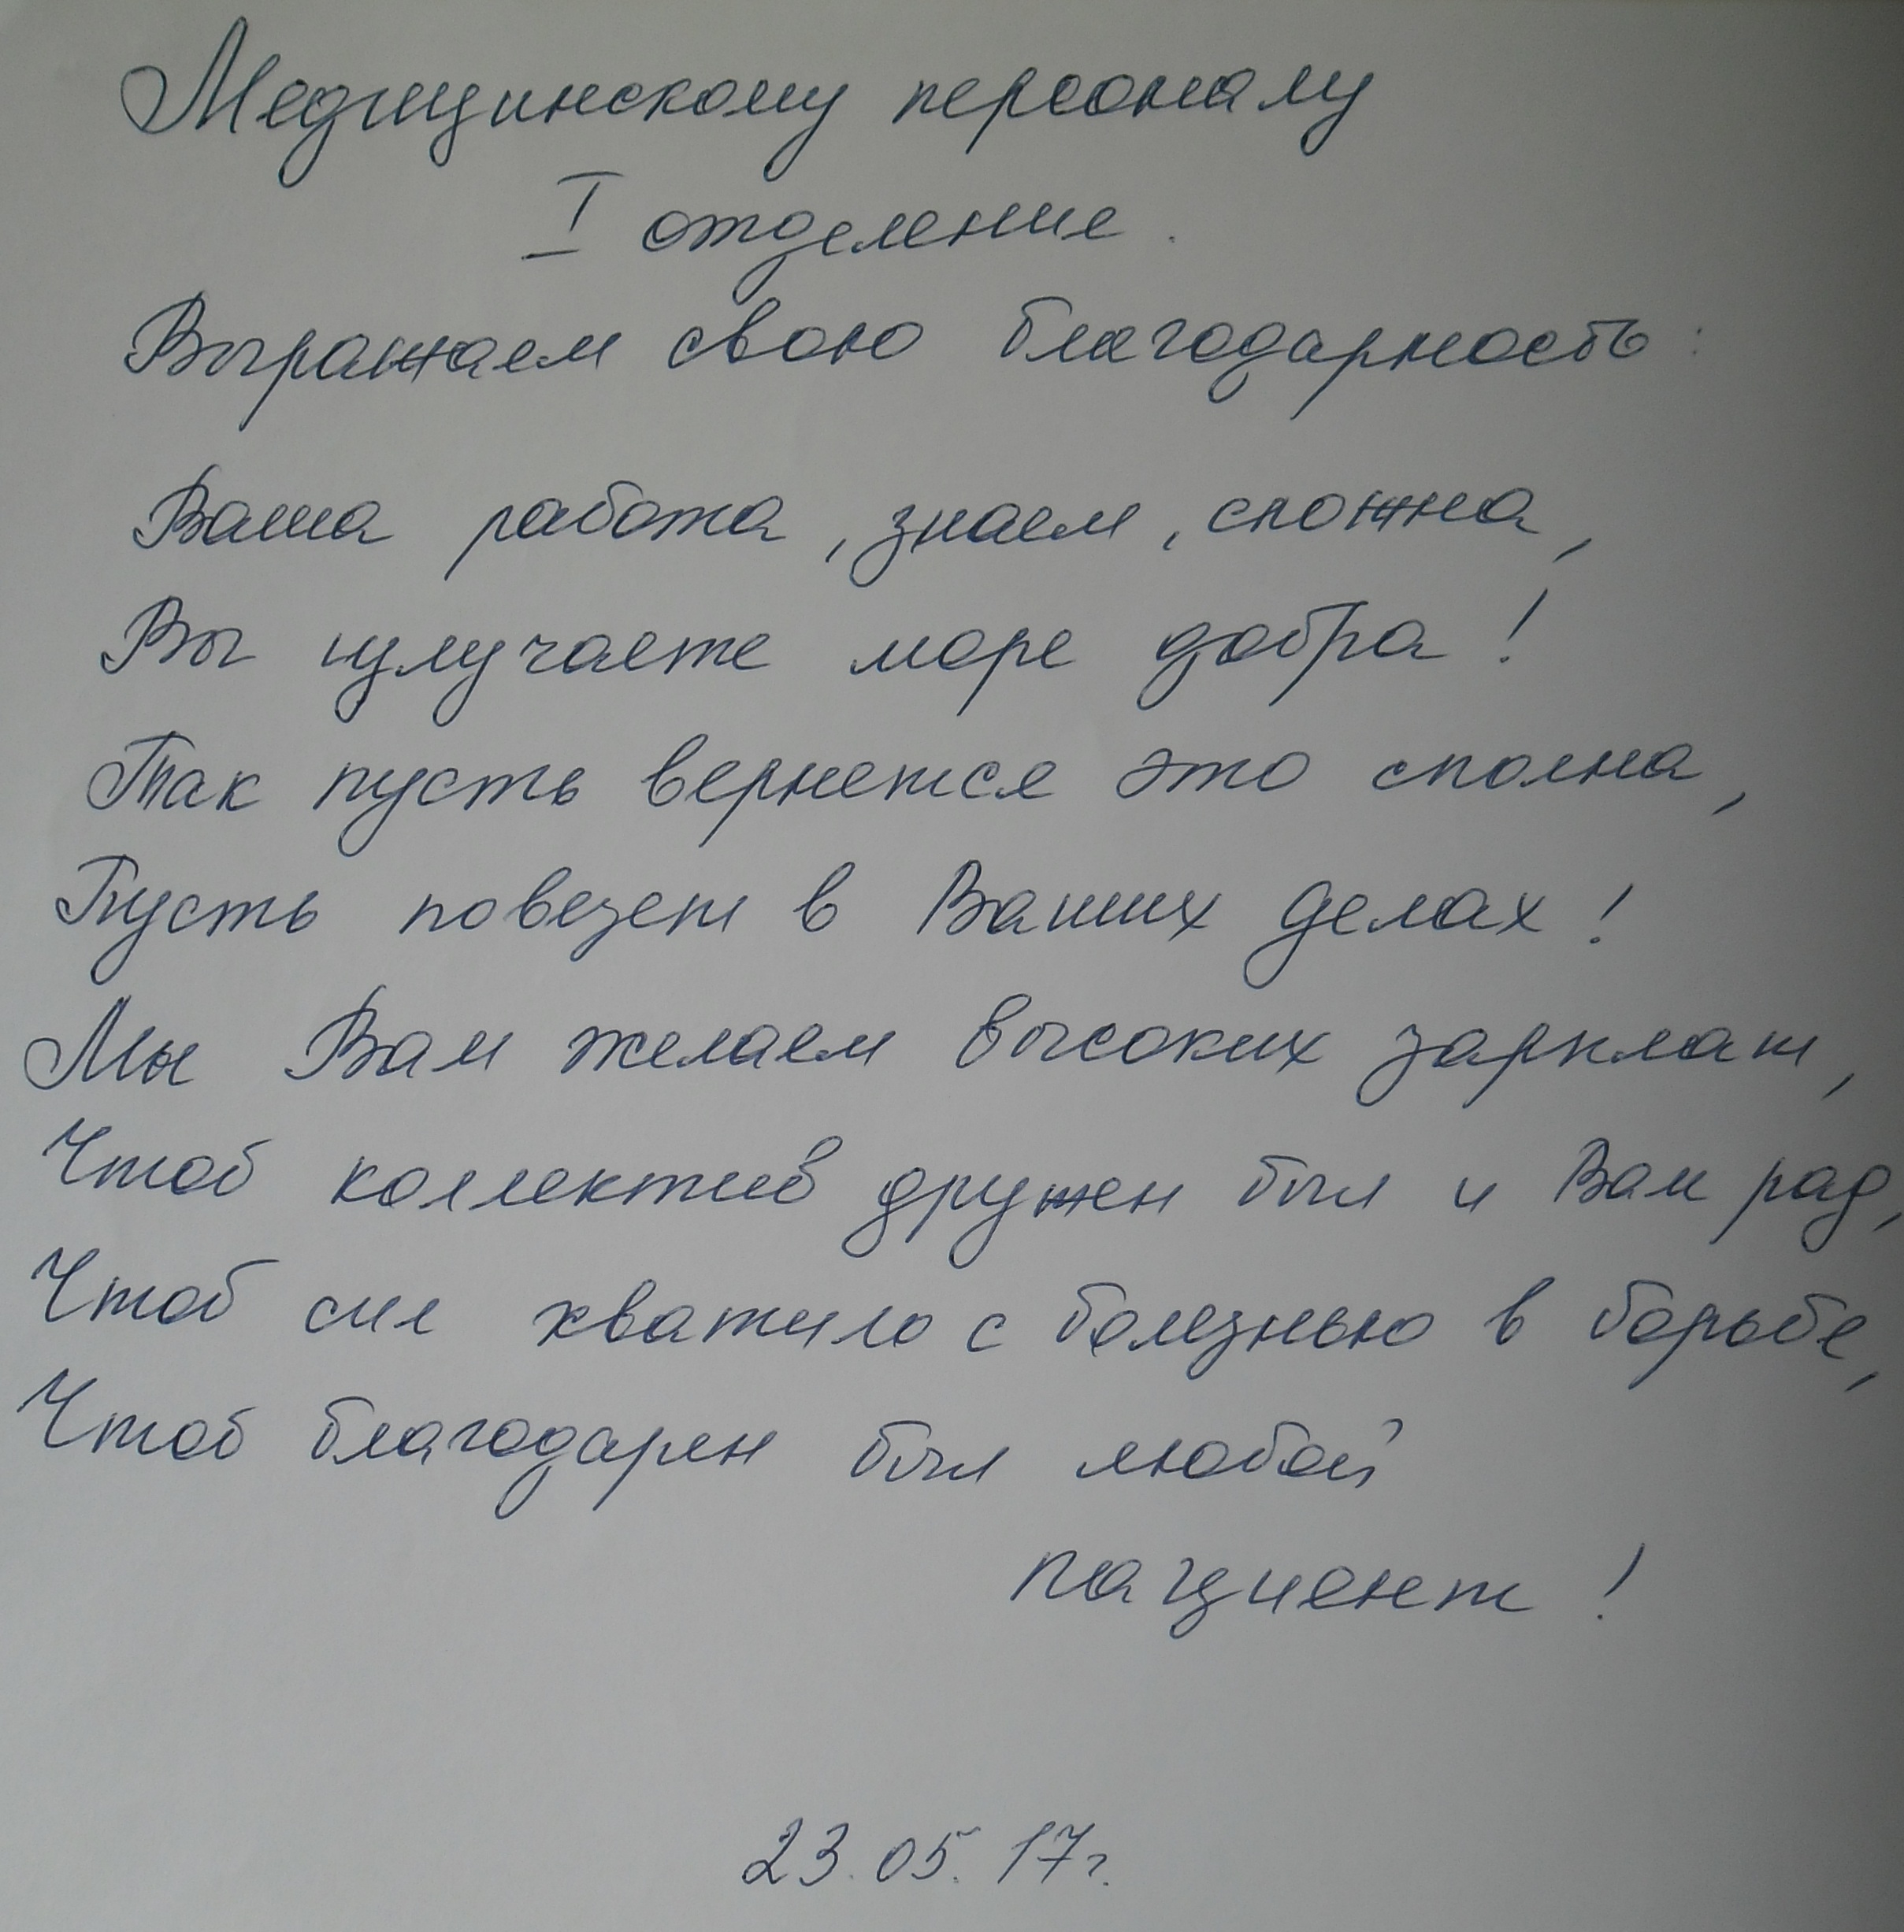 Медицинскому персоналу
I отделение.
Выражаем свою благодарность:
Ваша работа, знаем, сложна,
Вы излучаете море добра!
Так пусть вернется это сполна,
Пусть повезет в Ваших делах!
Мы Вам желаем высоких зарплат,
Чтоб коллектив дружен был и Вам рад,
Чтоб сил хватило с болезнью в борьбе,
Чтоб благодарен был любой
пациент!
23.05.17г.